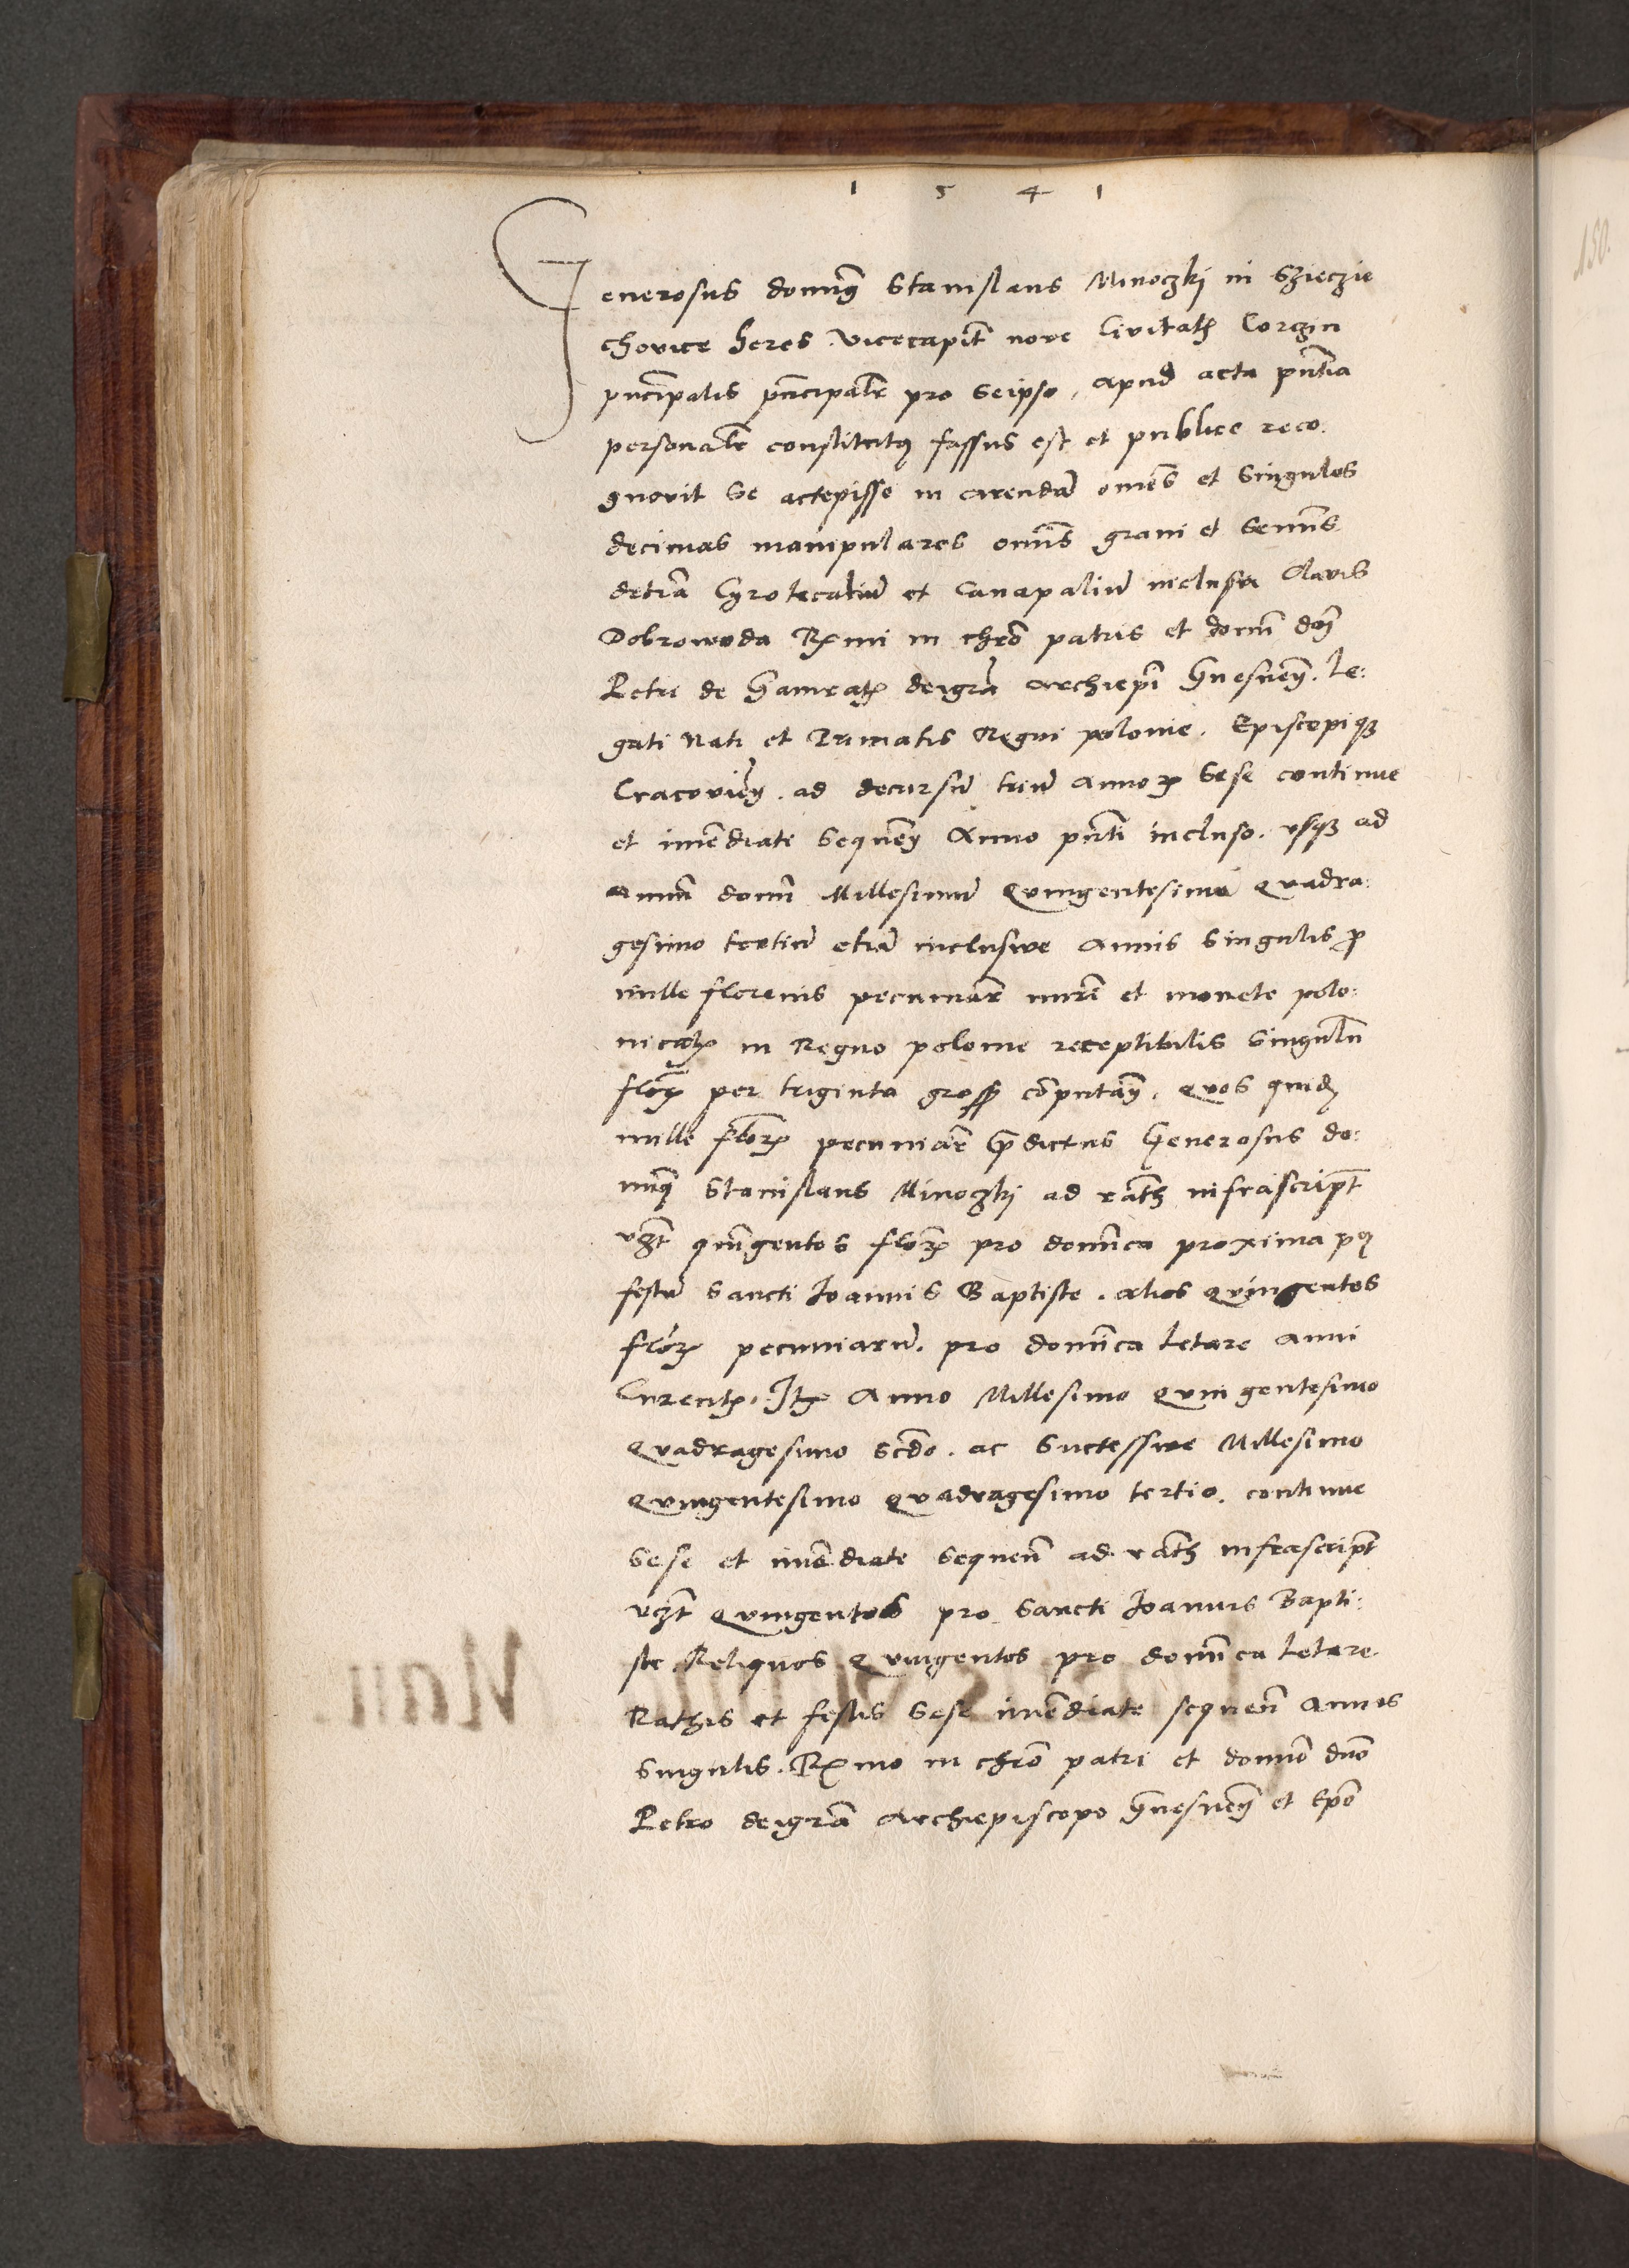 1 5 4 1
Generosus domin9 Stanislaus Minoczki in Szieczie
chovice heres vicecapit nove Civitatis Corczin
principalis principalr pro seipso, apud acta pntia
personalr constitutus fassus est et publice reco:
gnovit se accepisse in arendā omēs et singulos
decimas manipulares omīs grani et semīs
Cyrotecaliū et Canapaliū inclusa Clavis
Dobrowoda Rmi in chro patris et domī dnī
Petri de Gamratỉ deigrā archiepī Gnesnen. le:
gati Nati et Primatis Regni polonie. Episcopiqɜ
Cracovien. ad decursū triū annorꝝ sese continue
et imēdiate sequen Anno pnti incluso. usqɜ ad
annū domī Millesimū Quingentesimū Quadra:
gesimo tertiū etiā inclusive annis singulis p
mille florenis pecuniar numeri et monete polo:
nicaꝝ in Regno polonie receptibilis singulū
florꝝ per triginta gross computan. quos quidē
mille florꝝ pecuniar predictus Generosus do:
min9 Stanislaus Minoczki ad rath infrascript
vzt quīgentos florꝝ pro domīca proxima p9
festū Sancti Joannis Baptiste. alios quingentos
florꝝ pecuniarū. pro domīca letare anni
Currentꝭ. Itꝫ Anno Millesimo quingentesimo
Quadragesimo scdo. ac successive Millesimo
Quingentesimo Quadragesimo tertio. continue
sese et imēdiate sequen ad rath infrascript
vzt Quingentos pro Sancti Joannis Bapti:
ste Reliquos Quingentos pro domīca letare
Rathis et festis sese imēdiate sequen annis
singulis. Rmo in chro patri et domino dno
Petro deigrā Archiepiscopo Gnesnen et Epo
150.